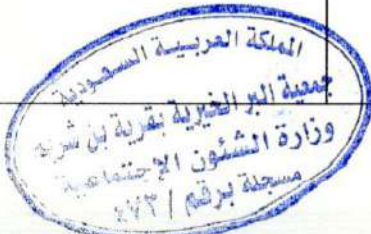 المملكة العربية السعودية
جمعية البر الخيرية بقرية بن شريم
وزارة الشئون الإجتماعية
مسجلة برقم / ٤٧٣